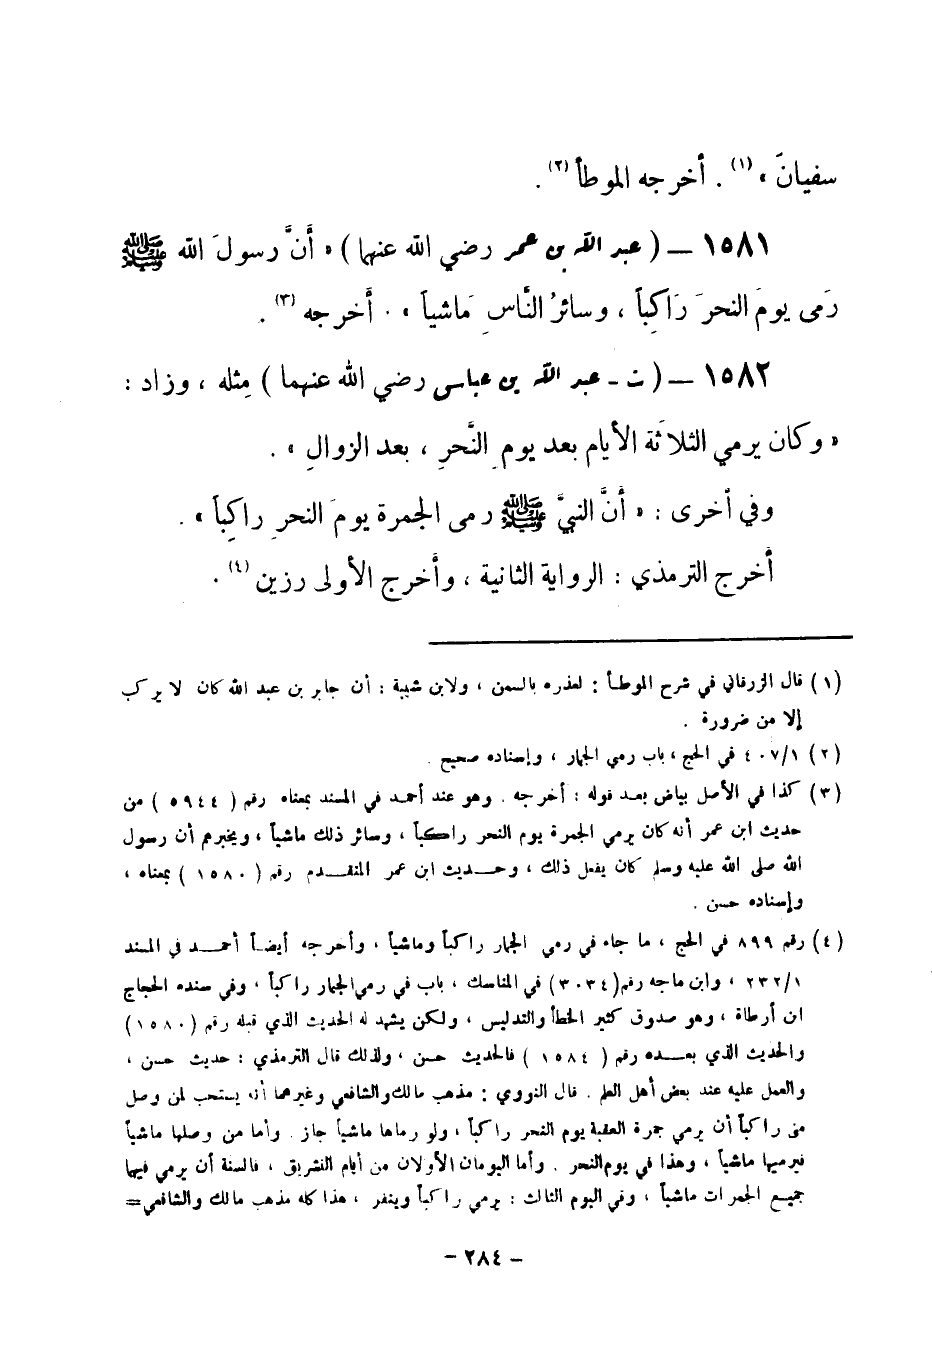 سفيانَ »(١) . أخرجه الموطأ(٢) .
١٥٨١ – ( عبد الله بن عمر رضي الله عنهما ) « أَنَّ رسولَ الله ﷺ
رَمى يومَ النحرَ رَاكِباً ، وسائرُ النَّاسِ مَاشياً » . أَخرجه(٣) .
١٥٨٢ – ( ت - عبد الله بن عباس رضي الله عنهما ) مِثله ، وزاد :
« وكان يرمي الثلاثَة الأيام بعد يومِ النَّحرِ ، بعد الزوالِ » .
وفي أخرى : « أَنَّ النبيَّ ﷺ رمى الجمرة يومَ النحرِ راكِباً » .
أَخرج الترمذي : الرواية الثانية ، وأَخرج الأولى رزين(٤) .
(١) قال الزرقاني في شرح الموطأ : لعذره بالسمن ، ولابن شيبة : أن جابر بن عبد الله كان لا يركب
إلا من ضرورة .
(٢) ٤٠٧/١ في الحج ، باب رمي الجمار ، وإسناده صحيح .
(٣) كذا في الأصل بياض بعد قوله : أخرجه . وهو عند أحمد في المسند بمعناه رقم ( ٥٩٤٤ ) من
حديث ابن عمر أنه كان يرمي الجمرة يوم النحر راكباً ، وسائر ذلك ماشياً ، ويخبرهم أن رسول
الله صلى الله عليه وسلم كان يفعل ذلك ، وحديث ابن عمر المتقدم رقم ( ١٥٨٠ ) بمعناه ،
وإسناده حسن .
(٤) رقم ٨٩٩ في الحج ، ما جاء في رمي الجمار راكباً وماشياً ، وأخرجه أيضاً أحمد في المسند
٢٣٢/١ ، وابن ماجه رقم(٣٠٣٤) في المناسك ، باب في رمي الجمار راكباً ، وفي سنده الحجاج
ابن أرطاة ، وهو صدوق كثير الخطأ والتدليس ، ولكن يشهد له الحديث الذي قبله رقم (١٥٨٠)
والحديث الذي بعده رقم ( ١٥٨٤ ) فالحديث حسن ، ولذلك قال الترمذي : حديث حسن ،
والعمل عليه عند بعض أهل العلم . قال النووي : مذهب مالك والشافعي وغيرهما أنه يستحب لمن وصل
منى راكباً أن يرمي جمرة العقبة يوم النحر راكباً ، ولو رماها ماشياً جاز . وأما من وصلها ماشياً
فيرميها ماشياً ، وهذا في يوم النحر . وأما اليومان الأولان من أيام التشريق ، فالسنة أن يرمي فيها
جميع الجمرات ماشياً ، وفي اليوم الثالث : يرمي راكباً وينفر ، هذا كله مذهب مالك والشافعي=
- ٢٨٤ -